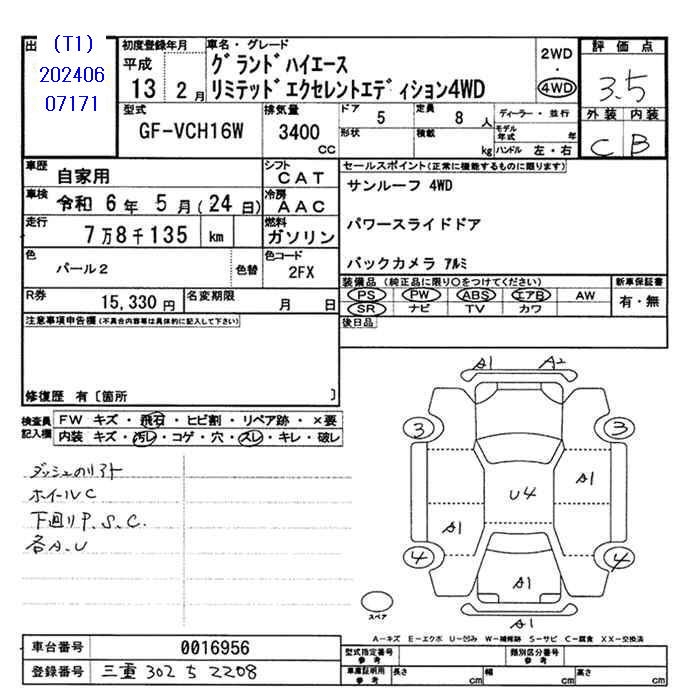 出 (T1) 初度登録年月 車名・グレード 2WD 評価点
202406 平成 グランドハイエース ・
07171 13 2月 リミテッドエクセレントエディション4WD 4WD 3.5
型式 排気量 ドア 5 定員 8人 ディーラー・並行 外装 内装
GF-VCH16W 3400cc 形状 積載 kg モデル年式 年 C B
ハンドル 左・右
車歴 自家用 シフト CAT セールスポイント(正常に機能するものに限ります)
車検 令和 6年 5月(24日) 冷房 AAC サンルーフ 4WD
走行 7万8千135 km 燃料 ガソリン パワースライドドア
色 パール2 色替 色コード 2FX バックカメラ アルミ
R券 15,330円 名変期限 月 日 装備品(純正品に限り○をつけてください) 新車保証書
PS PW ABS エアB AW 有・無
SR ナビ TV カワ
注意事項申告欄(不具合内容等は具体的に記入して下さい) 後日品
修復歴 有〔箇所 〕
検査員記入欄 FW キズ・飛石・ヒビ割・リペア跡・×要
内装 キズ・汚レ・コゲ・穴・スレ・キレ・破レ
ダッシュのリフト
ホイールC
下廻りP.S.C.
各A.U
A1 A2
3 3
A1
U4
A1
4 4
A1
A1
スペア
A-キズ E-エクボ U-凹み W-補修跡 S-サビ C-腐食 XX-交換済
車台番号 0016956 型式指定番号 参考 類別区分番号 参考
登録番号 三重 302 ち 2208 車庫証明用 参考 長さ cm 幅 cm 高さ cm